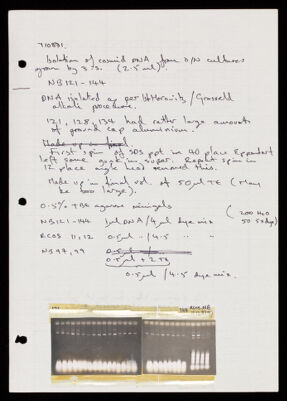 710881.
Isolation of cosmid DNA from O/N cultures
grown by S.S. (2.5 ml).
NB121-144
DNA isolated as per Horowitz / Grosveld
alkali procedure.
121, 128, 134 had rather large amounts
of ground cap aluminium.
Made up in final
First spin of SDS pot in 40 place Eppendorf
left some gunk in super. Repeat spin in
12 place angle head removed this.
Made up in final vol. of 50 μl TE (may
be too large).
0.5% TBE agarose minigels
NB121-144 1μl DNA / 4μl dye mix
(200 H2O
50 5x dye)
RCOS D, 12 0.5μl " / 4.5 " "
NB97, 99
0.5μl + 2 TE
0.5μl / 4.5 dye mix.
121
144